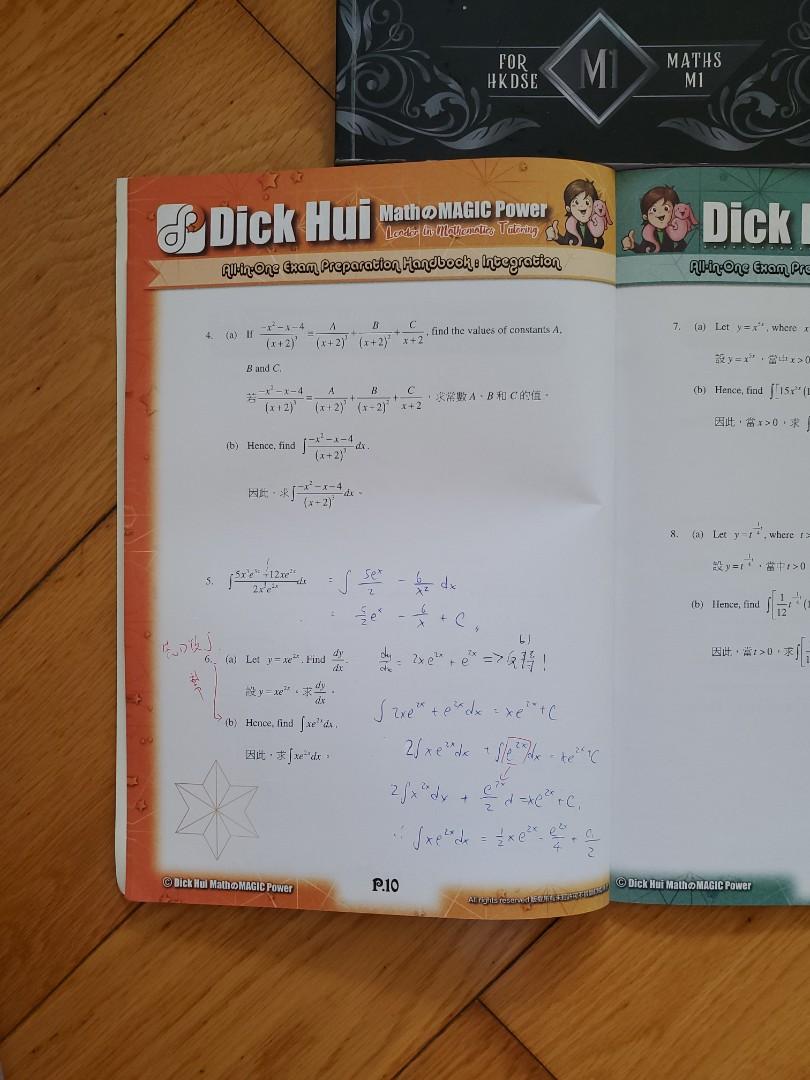 FOR HKDSE M1 MATHS M1
Dick Hui Math の MAGIC Power
Leader in Mathematics Tutoring
All-in-One Exam Preparation Handbook : Integration
4. (a) If (-x²-x-4)/(x+2)³ ≡ A/(x+2)³ + B/(x+2)² + C/(x+2), find the values of constants A,
B and C.
若 (-x²-x-4)/(x+2)³ ≡ A/(x+2)³ + B/(x+2)² + C/(x+2),求常數 A、B 和 C 的值。
(b) Hence, find ∫(-x²-x-4)/(x+2)³ dx.
因此,求∫(-x²-x-4)/(x+2)³ dx。
= ∫ 5eˣ/2 - 6/x² dx
= 5/2 eˣ - 6/x + C
6. (a) Let y = xe²ˣ. Find dy/dx.
dy/dx = 2xe²ˣ + e²ˣ =>
設 y = xe²ˣ,求 dy/dx。
(b) Hence, find ∫xe²ˣdx.
∫2xe²ˣ + e²ˣdx = xe²ˣ+C
因此,求∫xe²ˣdx。
2∫xe²ˣdx + ∫e²ˣdx = xe²ˣ+C
2∫x²ˣdx + e²ˣ/2 d = xe²ˣ + C₁
∴ ∫xe²ˣdx = ½xe²ˣ - e²ˣ/4 + C₁/2
© Dick Hui Math の MAGIC Power
P.10
All rights reserved
Dick
All-in-One Exam Pre
7. (a) Let y = x⁵ˣ, where x
設 y = x⁵ˣ,當中 x > 0
(b) Hence, find
因此,當 x > 0,求
8. (a) Let
, where t >
,當中 t > 0
(b) Hence, find
因此,當 t > 0,求
© Dick Hui Math の MAGIC Power